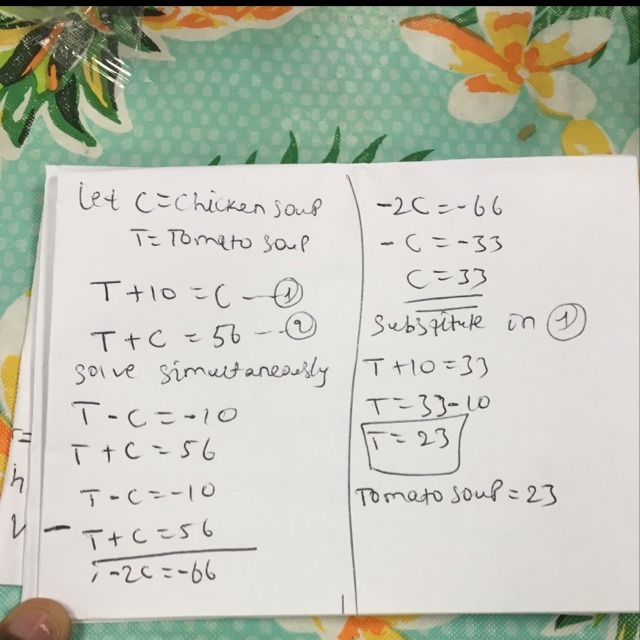 Let C = Chicken soup
T = Tomato soup
T + 10 = C — ①
T + C = 56 — ②
solve simultaneously
T - C = -10
T + C = 56
T - C = -10
- T + C = 56
-2C = -66
-2C = -66
- C = -33
C = 33
substitute in ①
T + 10 = 33
T = 33 - 10
T = 23
Tomato soup = 23